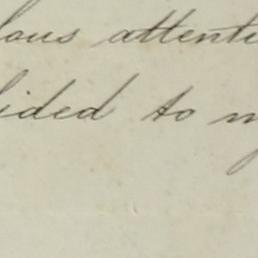 ous attenti
ided to m